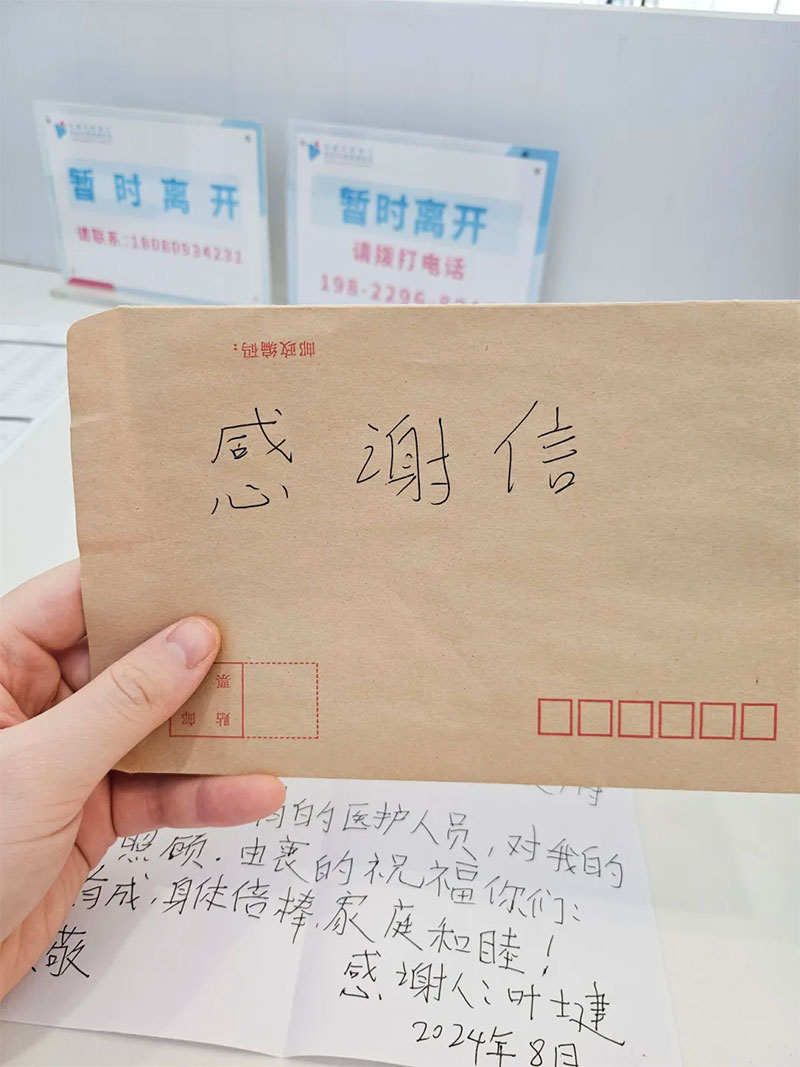 暂时离开
请联系:18080934231
暂时离开
请拨打电话
198-2296-
邮政编码:
感谢信
邮票
贴
的医护人员,对我的
照顾.由衷的祝福你们:
有成,身体倍棒,家庭和睦!
敬
感谢人:叶士建
2024年8月